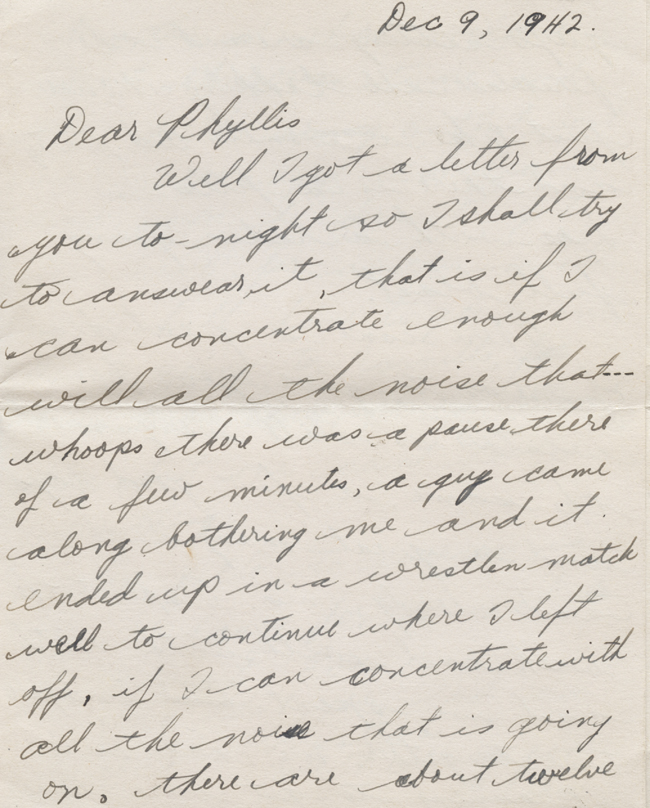 Dec 9, 1942.
Dear Phyllis
Well I got a letter from
you to-night so I shall try
to answear it, that is if I
can concentrate enough
will all the noise that---
whoops there was a pause there
of a few minutes, a guy came
along bothering me and it
ended up in a wrestlen match
well to continue where I left
off, if I can concentrate with
all the noise that is going
on, there are about twelve